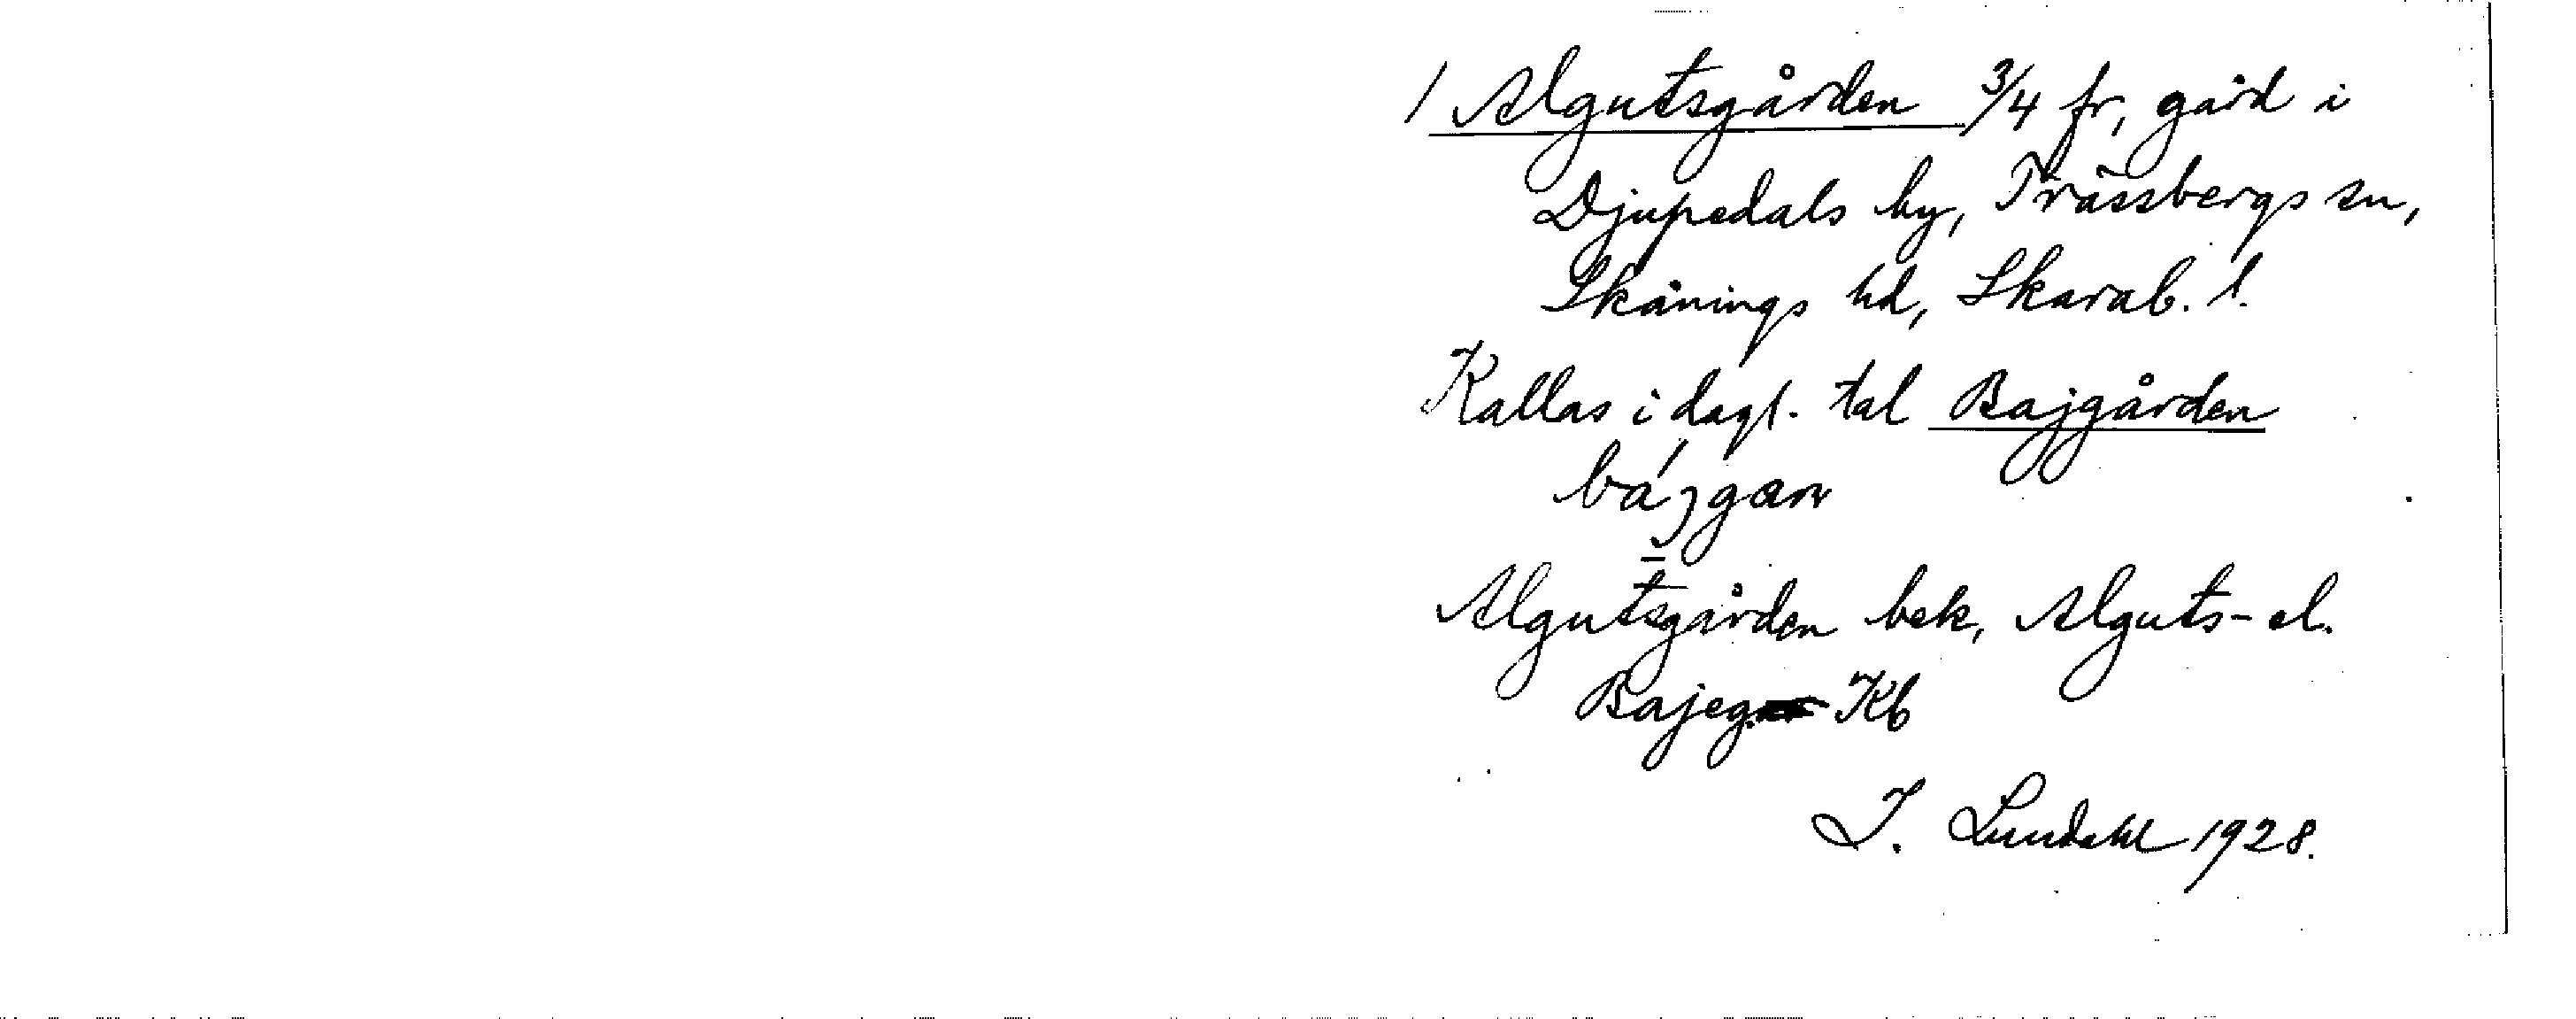 1 Algutsgården 3/4 fr, gård i
Djupedals by, Trässbergs sn,
Skånings hd, Skarab. l.
Kallas i dagl. tal Bajgården
bájgan
Algutsgården bek, Alguts- el.
Bajeg. Kb
I. Lundahl 1928.